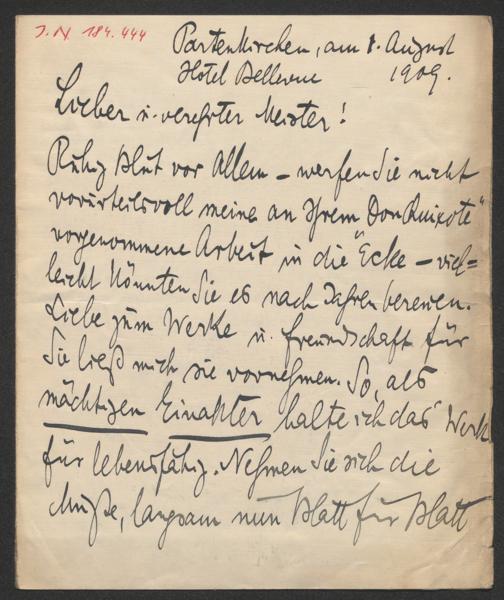 I.N. 184.444
Partenkirchen, am 1. August
Hôtel Bellevue 1909.
Lieber u. verehrter Meister!
Ruhig Blut vor Allem – werfen Sie nicht
vorurteilsvoll meine an Ihrem "Don Quixote"
vorgenommene Arbeit in die "Ecke – viel=
leicht könnten Sie es nach Jahren bereuen.
Liebe zum Werke u. Freundschaft für
Sie ließ mich sie vornehmen. So, als
mächtigen Einakter halte ich das Werk
für lebensfähig. Nehmen Sie sich die
Muße, langsam nun Blatt für Blatt